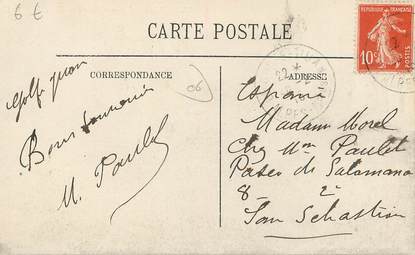 6 €
CARTE POSTALE
RÉPUBLIQUE FRANÇAISE
10c
POSTES
CORRESPONDANCE
ADRESSE
06
22
Golfe Juan
Bons souvenirs
M. Paulet
Espagne
Madame Morel
Chez Mme Paulet
Paseo de Salamanca
8 - 2º
San Sebastian